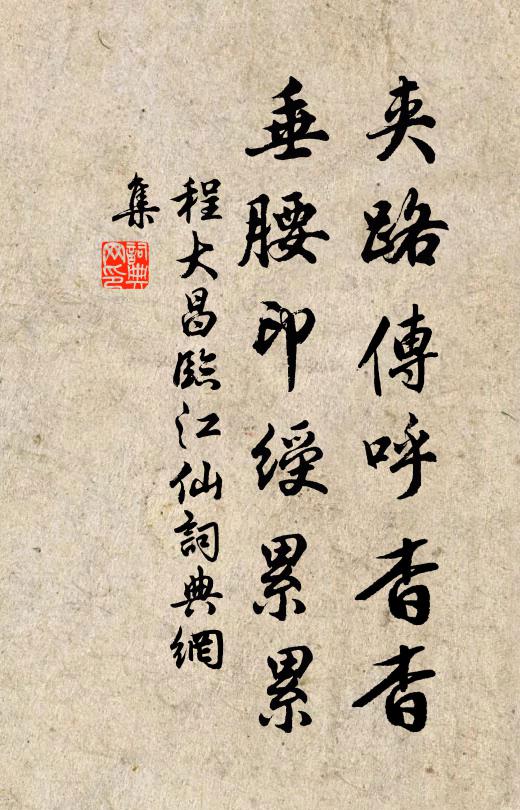 夾路傳呼杳杳
垂腰印綬累累
程大昌臨江仙詞典網
集
詞典
网印